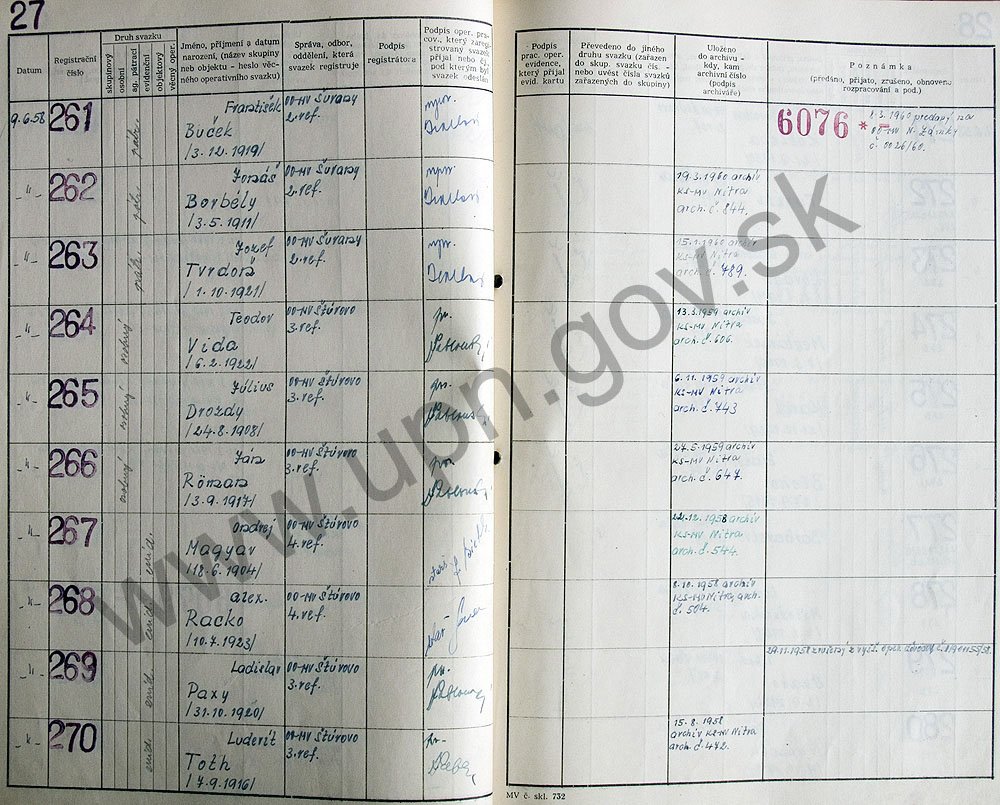 27
Datum
Registrační
číslo
Druh svazku
skupinový
osobní
ag. pátrací
evidenční
objektový
věcný oper.
Jméno, příjmení a datum
narození, (název skupiny
neb objektu - heslo věc-
ného operativního svazku)
Správa, odbor,
oddělení, která
svazek registruje
Podpis
registrátora
Podpis oper. pra-
cov., který zaregi-
strovaný svazek
přijal nebo čj.,
pod kterým byl
svazek odeslán
Podpis
prac. oper.
evidence,
který přijal
evid. kartu
Převedeno do jiného
druhu svazku (zařazen
do skup. svazku čís. -
nebo uvést čísla svazků
zařazených do skupiny)
Uloženo
do archivu -
kdy, kam
archivní číslo
(podpis
archiváře)
Poznámka
(předáno, přijato, zrušeno, obnoveno
rozpracování a pod.)
9.6.58
261
František
Buček
/3.12.1919/
OO-MV Šurany
2. ref.
npor.
6076 * -
1.3.1960
č. 0026/60.
-"-
262
Borbély
/3.5.1911/
OO-MV Šurany
2. ref.
npor.
19.3.1960 archív
KS-MV Nitra
arch. č. 844.
-"-
263
Jozef
Tvrdoň
/1.10.1921/
OO-MV Šurany
2. ref.
npor.
15.1.1960 archív
KS-MV Nitra
arch. č. 789.
-"-
264
osobný
Teodor
Vida
/6.2.1922/
OO-MV Štúrovo
3. ref.
13.3.1959 archív
KS-MV Nitra
arch. č. 606.
-"-
265
osobný
Július
Drozdy
/24.8.1908/
OO-MV Štúrovo
3. ref.
6.11.1959 archív
KS-MV Nitra
arch. č. 743
-"-
266
osobný
Ján
Róman
/3.9.1917/
OO-MV Štúrovo
3. ref.
27.5.1959 archív
KS-MV Nitra
arch. č. 647.
-"-
267
evid.
Ondrej
Magyar
/18.6.1904/
OO-MV Štúrovo
4. ref.
22.12.1958 archív
KS-MV Nitra
arch. č. 544.
-"-
268
evid.
Alex.
Racko
/10.7.1923/
OO-MV Štúrovo
4. ref.
8.10.1958 archív
KS-MV Nitra, arch.
č. 504.
-"-
269
evid.
Ladislav
Paxy
/31.10.1920/
OO-MV Štúrovo
3. ref.
29.11.1958
-"-
270
evid.
Toth
/7.9.1916/
OO-MV Štúrovo
3. ref.
15.8.1958
archív KS-MV Nitra
arch. č. 472.
MV č. skl. 732
www.upn.gov.sk